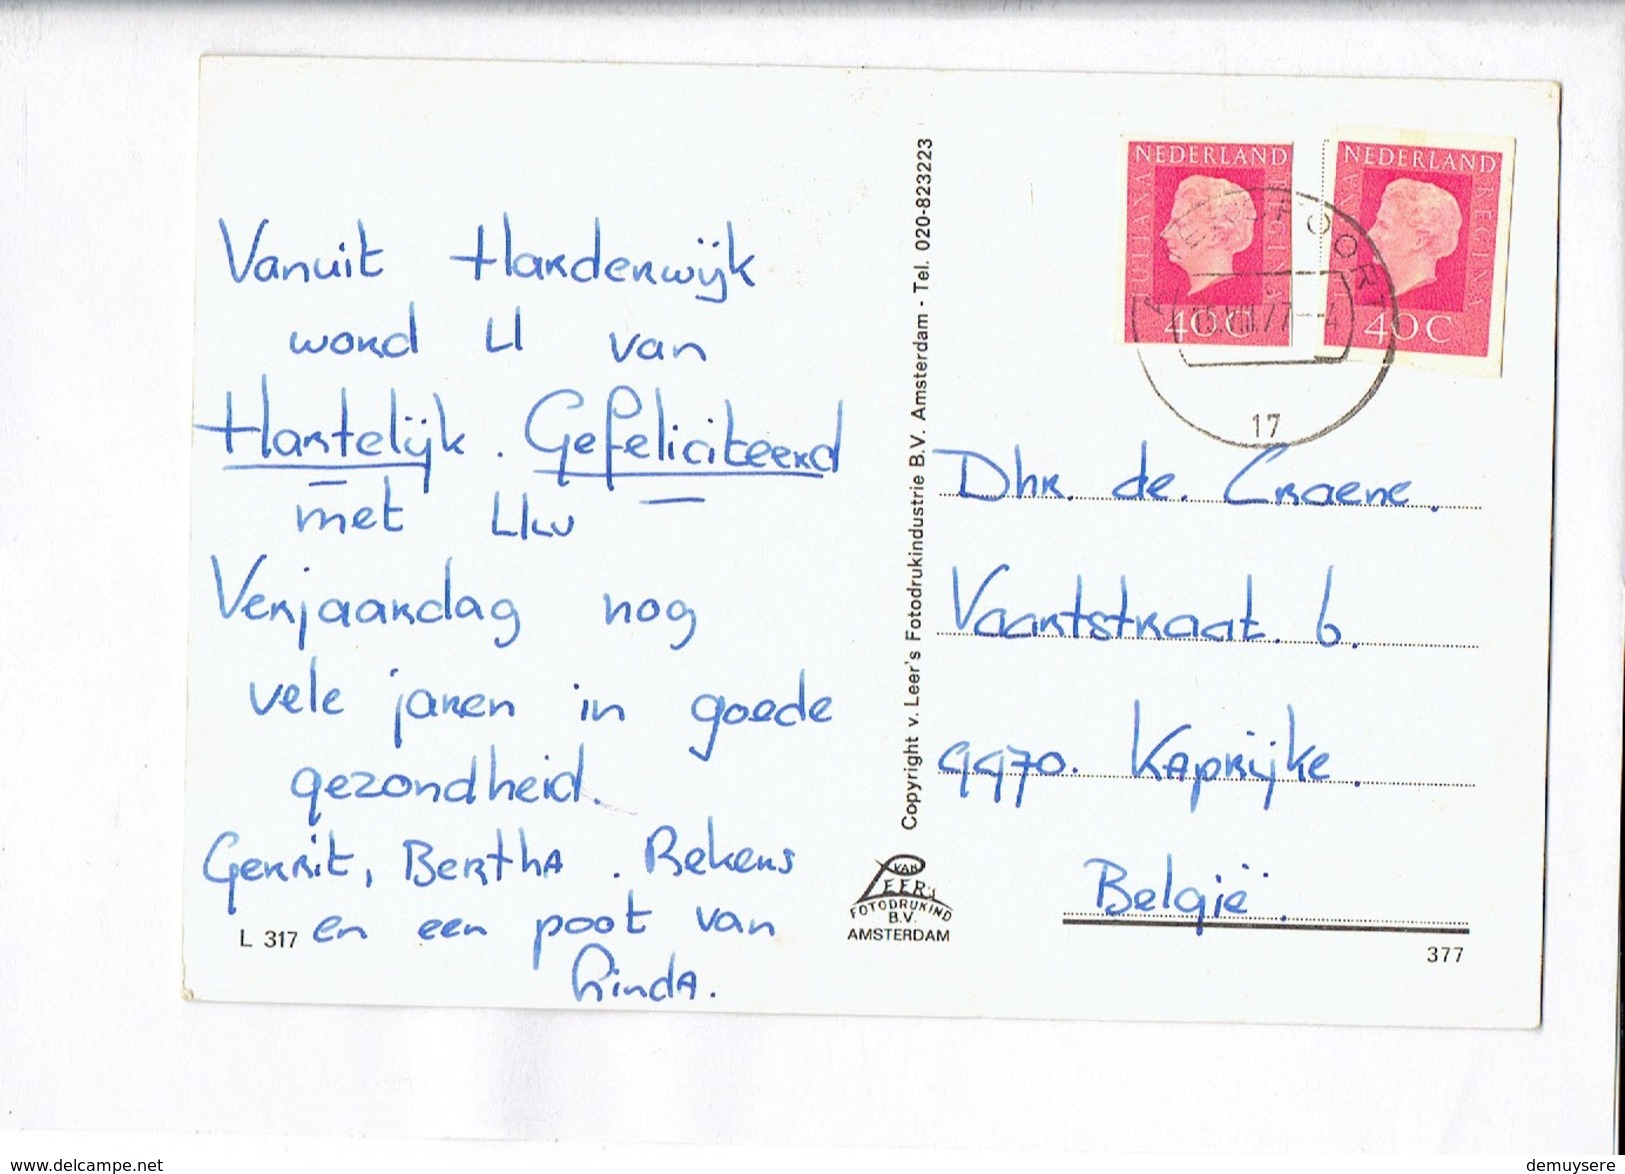 Vanuit Harderwijk
word U van
Hartelijk. Gefeliciteerd
met Uw
Verjaardag nog
vele jaren in goede
gezondheid.
Gerrit, Bertha. Bekens
en een poot van
Linda.
L 317
Copyright v. Leer's Fotodrukindustrie B.V. Amsterdam - Tel. 020-823223
VAN
LEER's
FOTODRUKIND
B.V.
AMSTERDAM
NEDERLAND
JULIANA REGINA
40C
NEDERLAND
JULIANA REGINA
40C
17
Dhr. de. Craene.
Vaartstraat. 6.
9970. Kaprijke.
België.
377
www.delcampe.net
demuysere